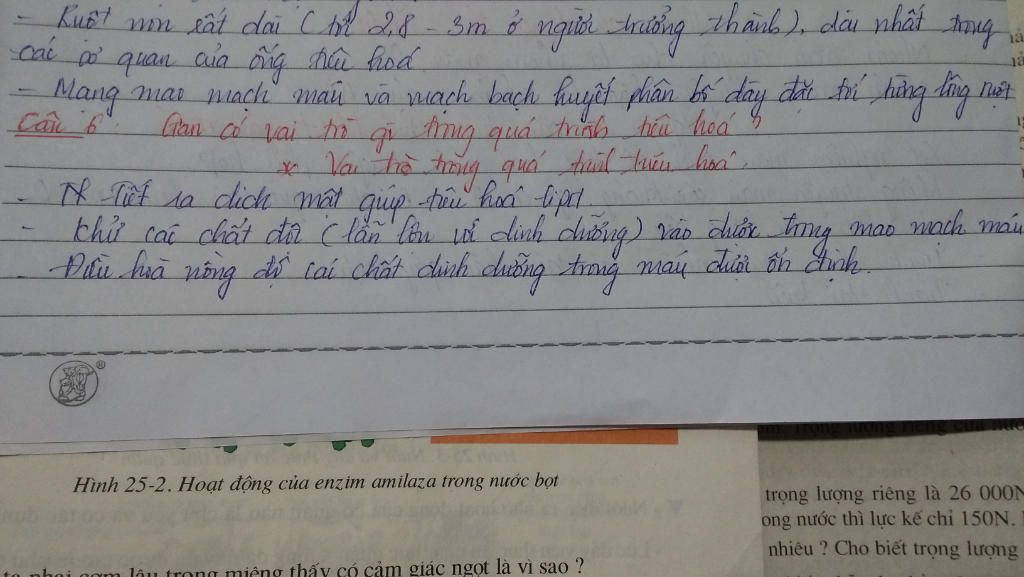 - Ruột non rất dài (tới 2,8 - 3m ở người trưởng thành), dài nhất trong
các cơ quan của ống tiêu hoá
- Mạng mao mạch máu và mạch bạch huyết phân bố dày đặc tới từng lông ruột
Câu 6. Gan có vai trò gì trong quá trình tiêu hoá ?
* Vai trò trong quá trình tiêu hoá.
- Tiết ra dịch mật giúp tiêu hoá lipit.
- Khử các chất độc (lẫn lộn với dinh dưỡng) vào được trong mao mạch máu
- Điều hoà nồng độ các chất dinh dưỡng trong máu được ổn định.
®
Hình 25-2. Hoạt động của enzim amilaza trong nước bọt
trọng lượng riêng là 26 000N
ong nước thì lực kế chỉ 150N.
nhiêu ? Cho biết trọng lượng
ta nhai cơm lâu trong miệng thấy có cảm giác ngọt là vì sao ?